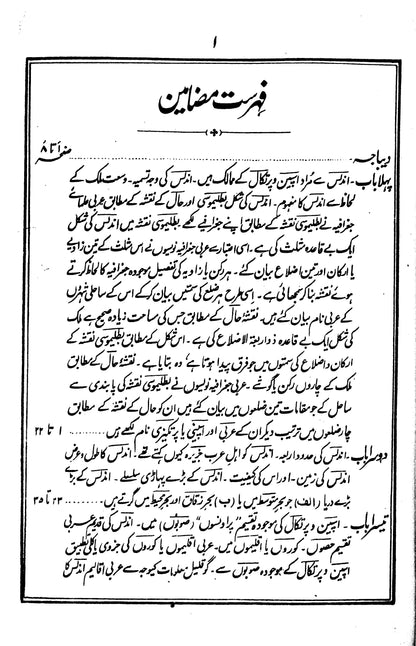 ۱
فہرست مضامین
دیباچہ ........ صفحہ ۱ تا ۸
پہلا باب - اندلس سے مُراد اسپین و پرتگال کے ممالک ہیں - اندلس کی وجہ تسمیہ - وسعت ملک کے
لحاظ سے اندلس کا مفہوم - اندلس کی شکل بطلیموسی اور حال کے نقشہ کے مطابق عربی علمائے
جغرافیہ نے بطلیموسی نقشہ کے مطابق اپنے جغرافیے لکھے بطلیموسی نقشہ میں اندلس کی شکل
ایک بے قاعدہ مثلث کی ہے - اسی اعتبار سے عربی جغرافیہ نویسوں نے اس مثلث کے تین زاویے
یا ارکان اور تین اضلاع بیان کئے - ہر رکن یا زاویہ کی تفصیل موجودہ جغرافیہ کا لحاظ کرتے
ہوئے نقشہ بنا کر سمجھائی ہے - اسی طرح ہر ضلع کی سمتیں بیان کر کے اس کے ساحلی شہروں
کے عربی نام بیان کئے ہیں - نقشہ حال کے مطابق جس کی مساحت زیادہ صحیح ہے ملک
کی شکل ایک بے قاعدہ ذو اربعۃ الاضلاع کی ہے - اس شکل کے مطابق بطلیموسی نقشہ کے
ارکان و اضلاع کی سمتوں میں جو فرق پیدا ہوتا ہے وہ بتایا ہے - نقشہ حال کے مطابق
ملک کے چاروں رکن یا گوشے - عربی جغرافیہ نویسوں نے بطلیموسی نقشہ کی پابندی سے
ساحل کے جو مقامات تین ضلعوں میں بیان کئے ہیں ان کو حال کے نقشہ کے مطابق
چار ضلعوں میں ترتیب دیکر ان کے عربی اور اسپینی یا پرتگیزی نام لکھے ہیں ........ ۱ تا ۲۲
دوسرا باب - اندلس کی حدود اربعہ - اندلس کو اہل عرب جزیرہ کیوں کہتے تھے - اندلس کا طول و عرض
اندلس کی زمین - اور اس کی کیفیت - اندلس کے بڑے پہاڑی سلسلے - اندلس کے بڑے
بڑے دریا (الف) جو بحر متوسط میں یا (ب) بحر زقاق اور بحر محیط میں گرتے ہیں ........ ۲۳ تا ۳۵
تیسرا باب - اسپین و پرتگال کی موجودہ تقسیم "پراونسوں" (صوبوں) میں - اندلس کی قدیم عربی
تقسیم حصوں - کوروں یا اقلیموں میں - عربی اقلیموں یا کوروں کی جزوی یا کلی تطبیق
اسپین و پرتگال کے موجودہ صوبوں سے - گو قلیل معلومات کیوجہ سے عربی اقالیم اندلس کا